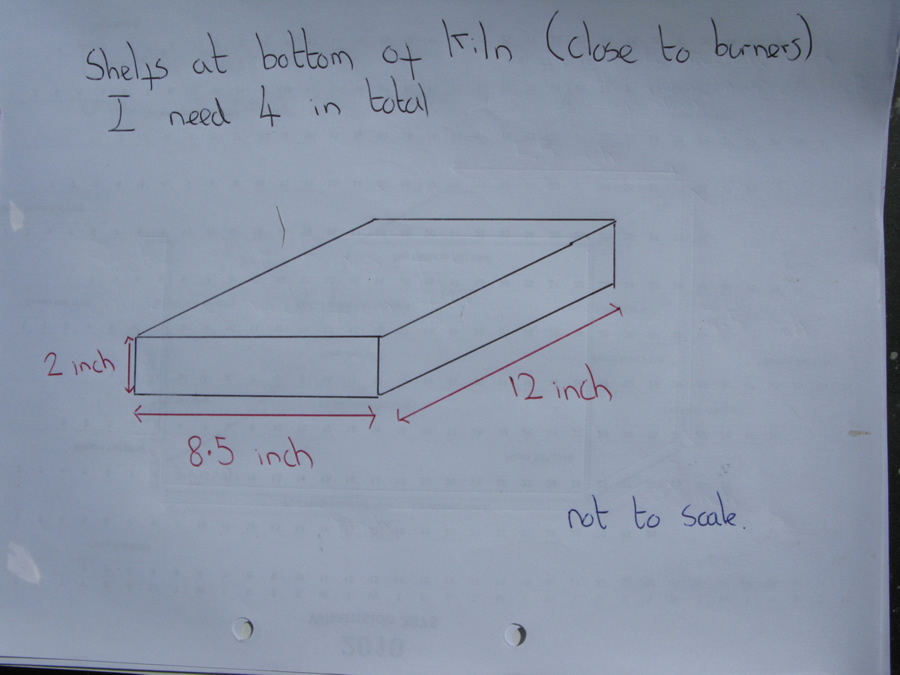 Shelfs at bottom of kiln (close to burners)
I need 4 in total
2 inch
12 inch
8.5 inch
not to scale.
2010